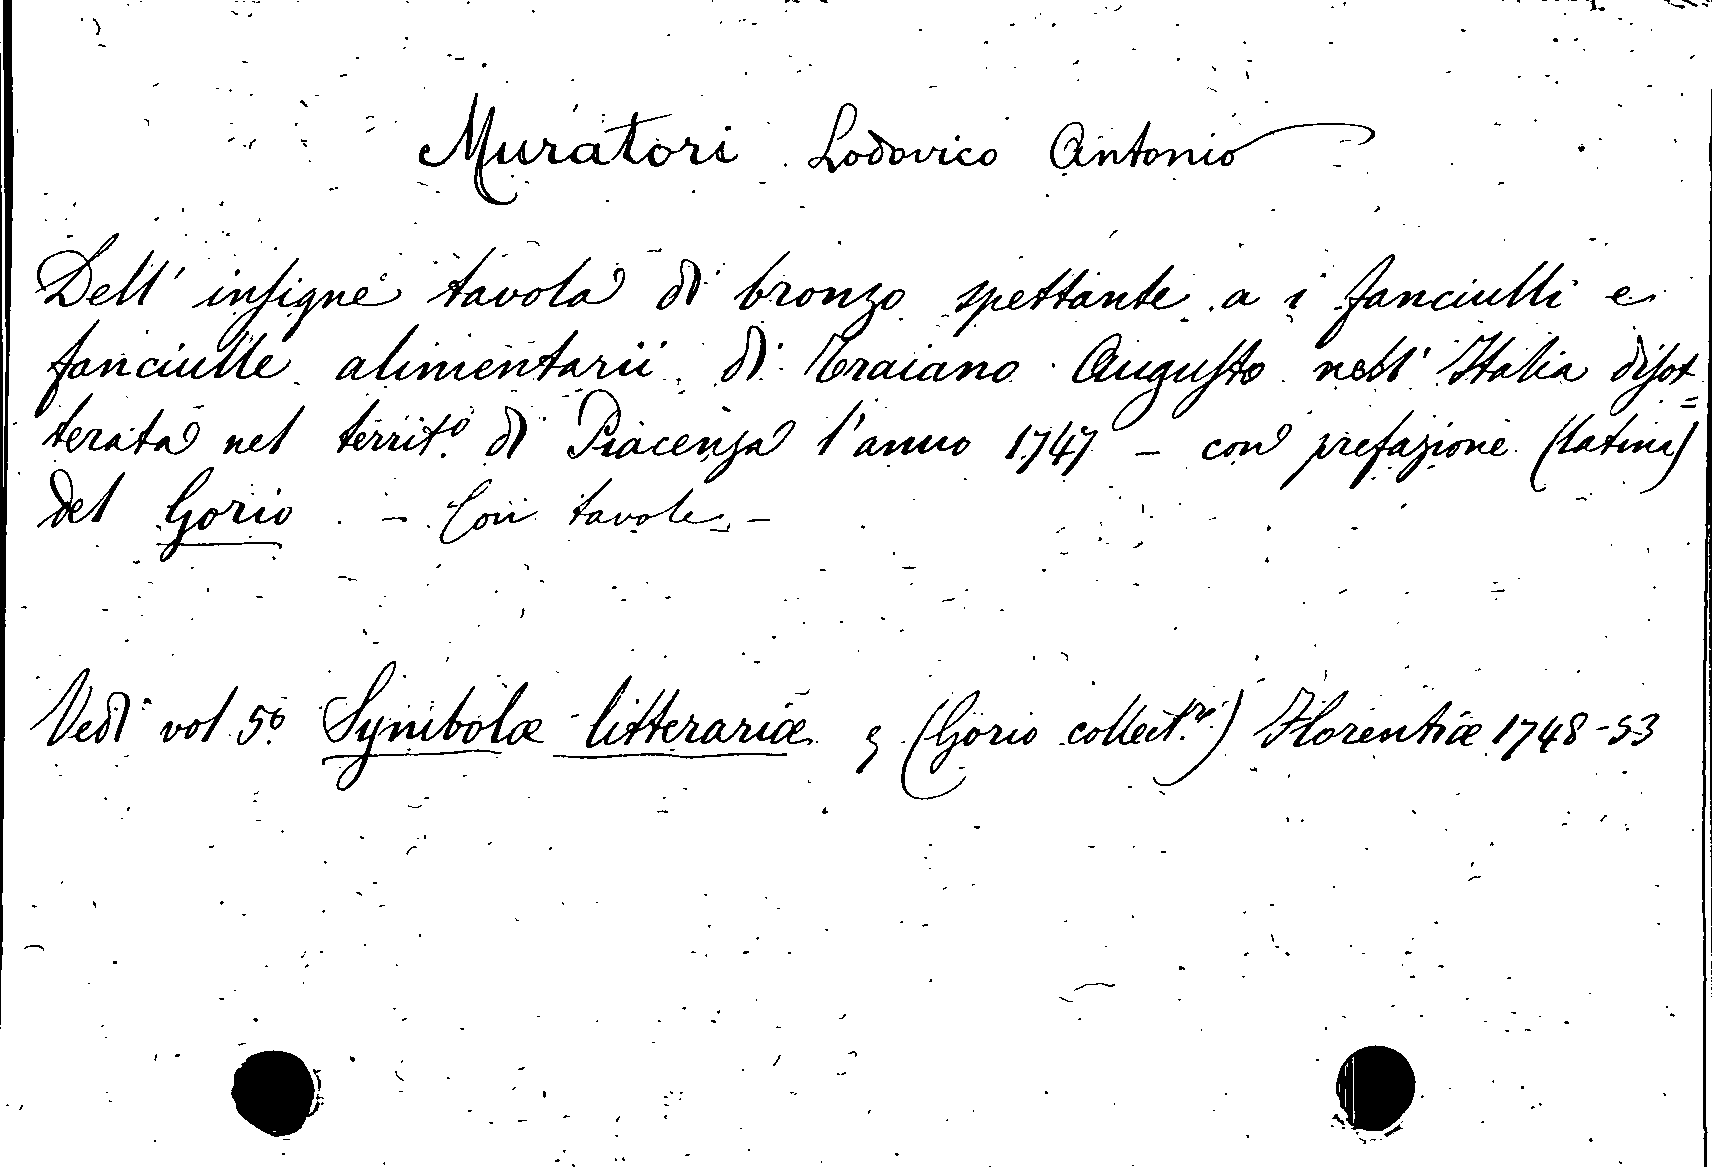 Muratori Lodovico Antonio
Dell' insigne tavola di bronzo spettante a i fanciulli e
fanciulle alimentarii di Traiano Augusto nell' Italia disot=
terata nel territ.º di Piacenza l'anno 1747 - con prefazione (latina)
del Gorio - Con tavole -
Vedi vol. 5º Symbolæ litterariæ (Gorio collect.re) Florentiæ 1748-53